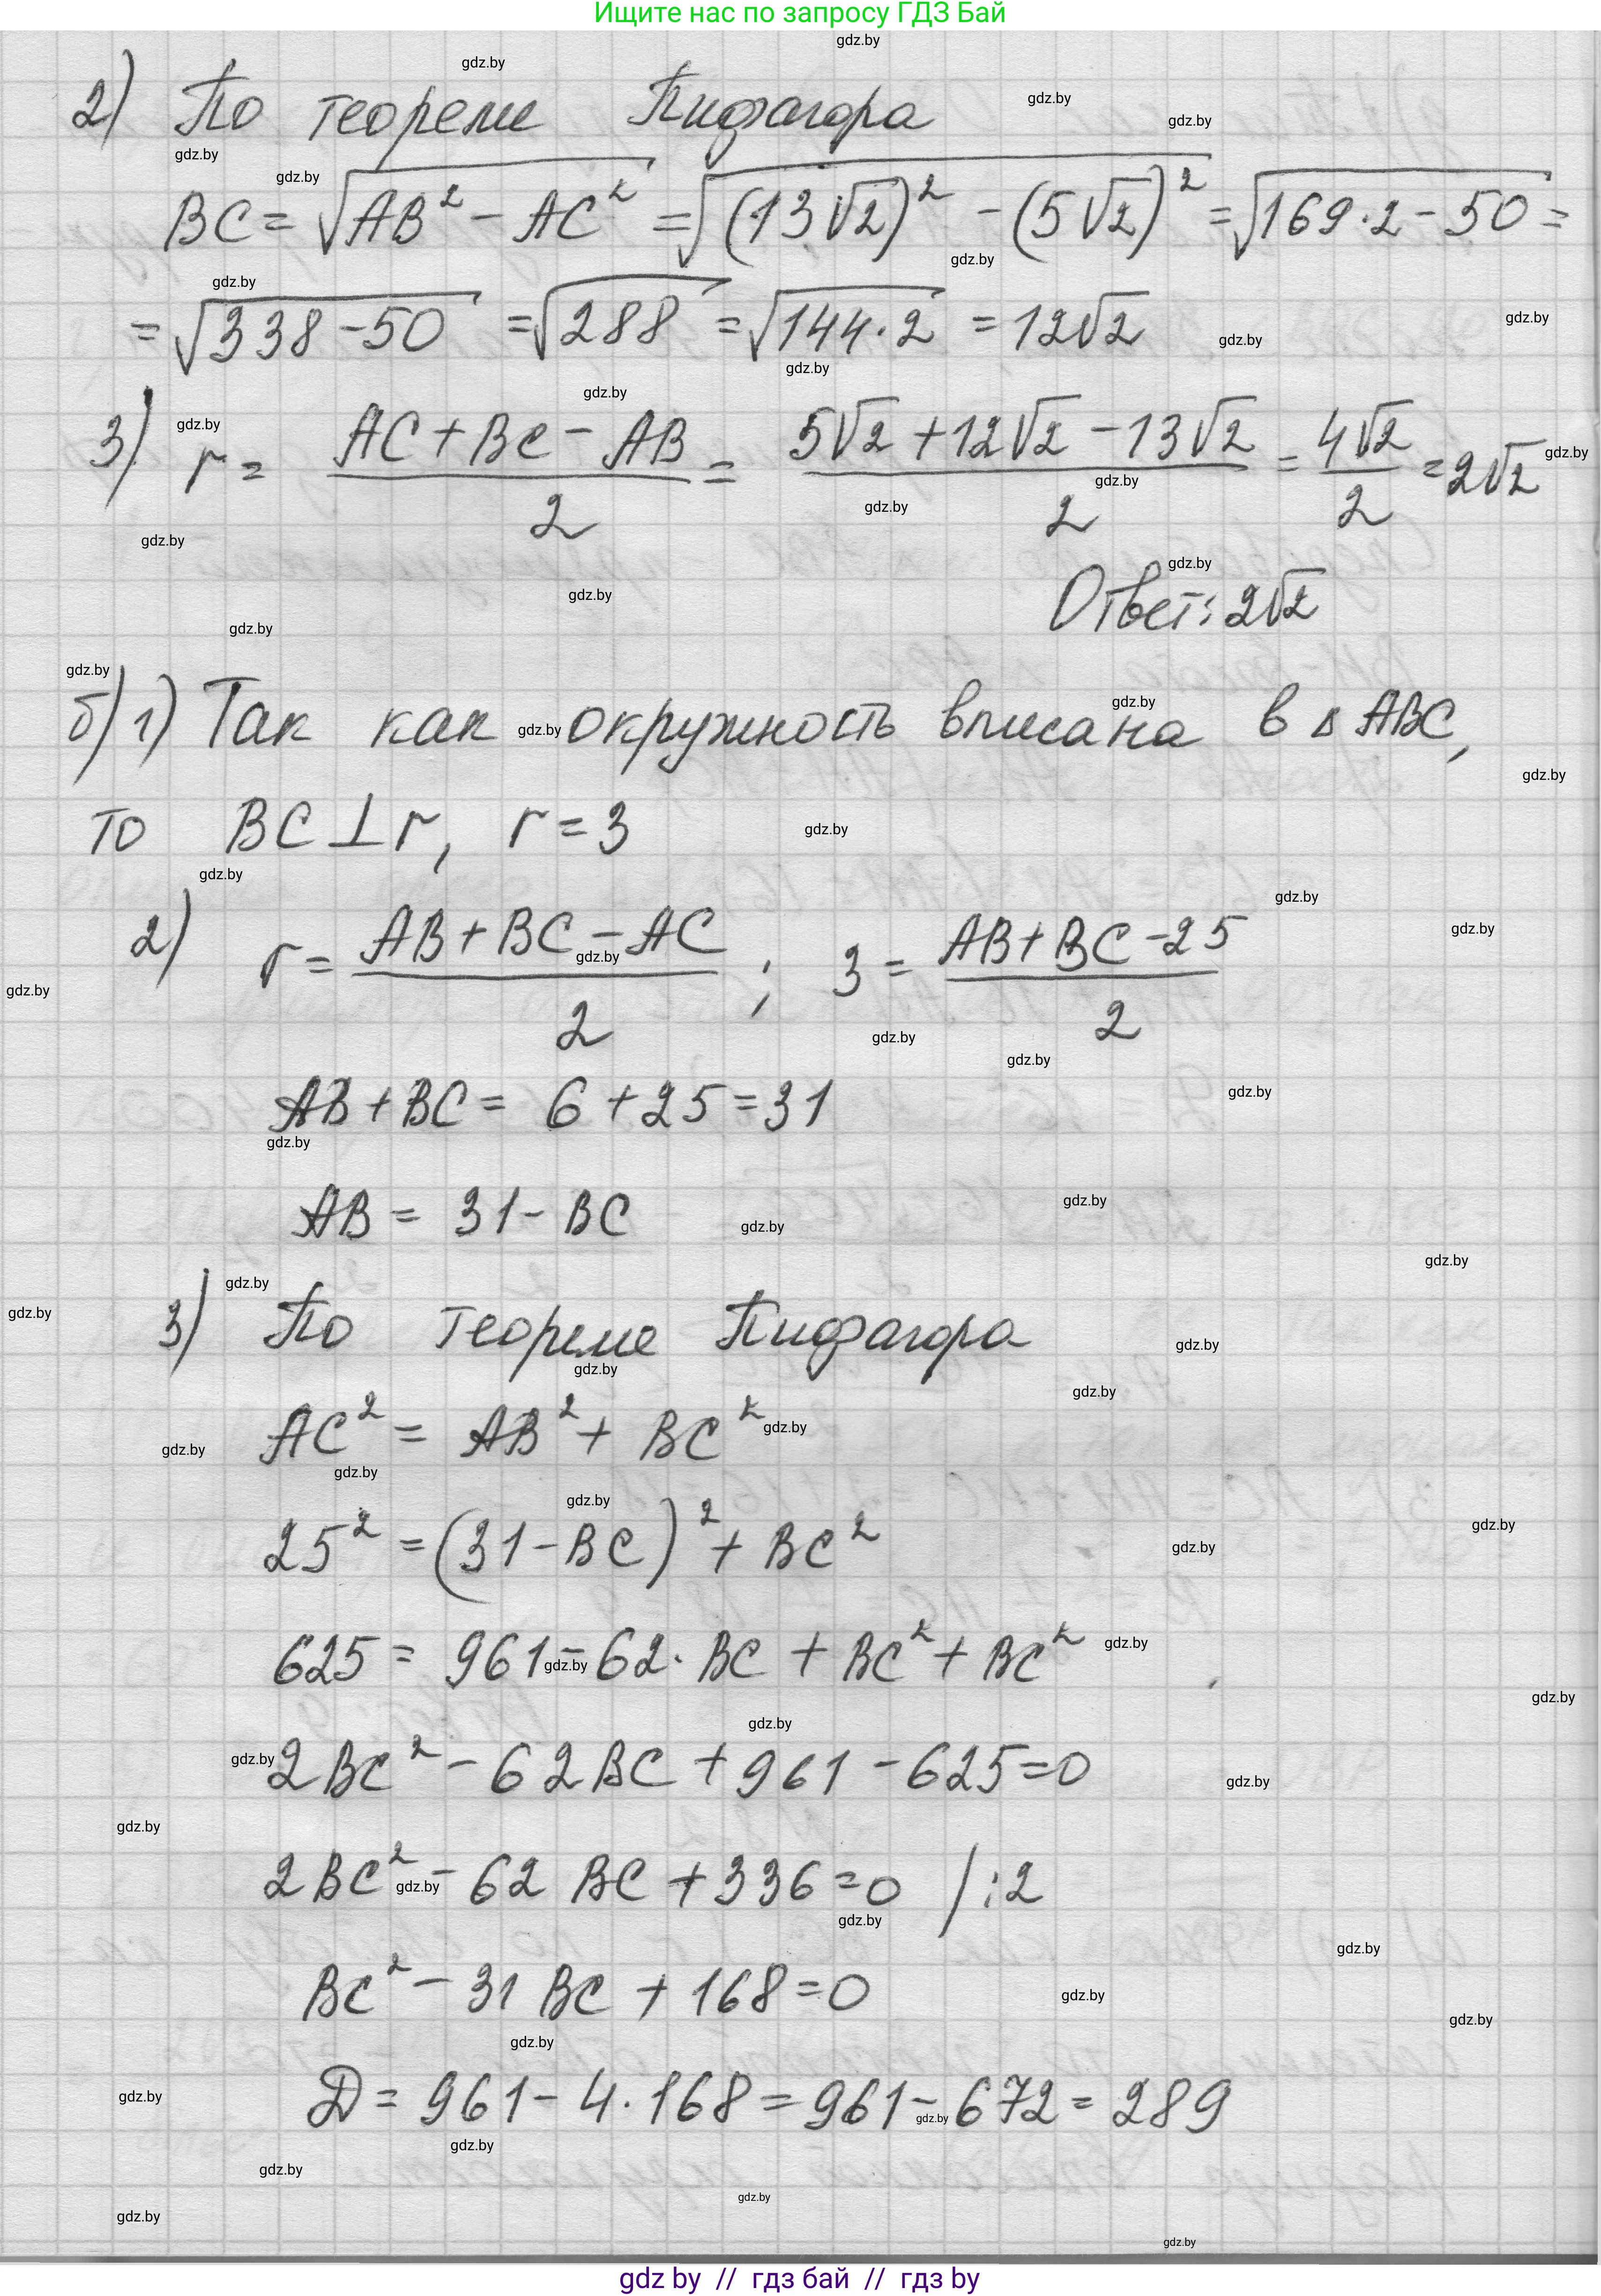 Ищите нас по запросу ГДЗ Бай
2) По теореме Пифагора
BC = √(AB² − AC²) = √((13√2)² − (5√2)²) = √(169·2 − 50) =
= √(338−50) = √288 = √(144·2) = 12√2
3) r = (AC + BC − AB)/2 = (5√2 + 12√2 − 13√2)/2 = 4√2/2 = 2√2
Ответ: 2√2
б) 1) Так как окружность вписана в Δ ABC,
то BC ⊥ r, r = 3
2) r = (AB + BC − AC)/2 ; 3 = (AB + BC − 25)/2
AB + BC = 6 + 25 = 31
AB = 31 − BC
3) По теореме Пифагора
AC² = AB² + BC²
25² = (31 − BC)² + BC²
625 = 961 − 62· BC + BC² + BC²
2BC² − 62BC + 961 − 625 = 0
2BC² − 62 BC + 336 = 0 /:2
BC² − 31 BC + 168 = 0
D = 961 − 4·168 = 961 − 672 = 289
gdz by // гдз бай // гдз by